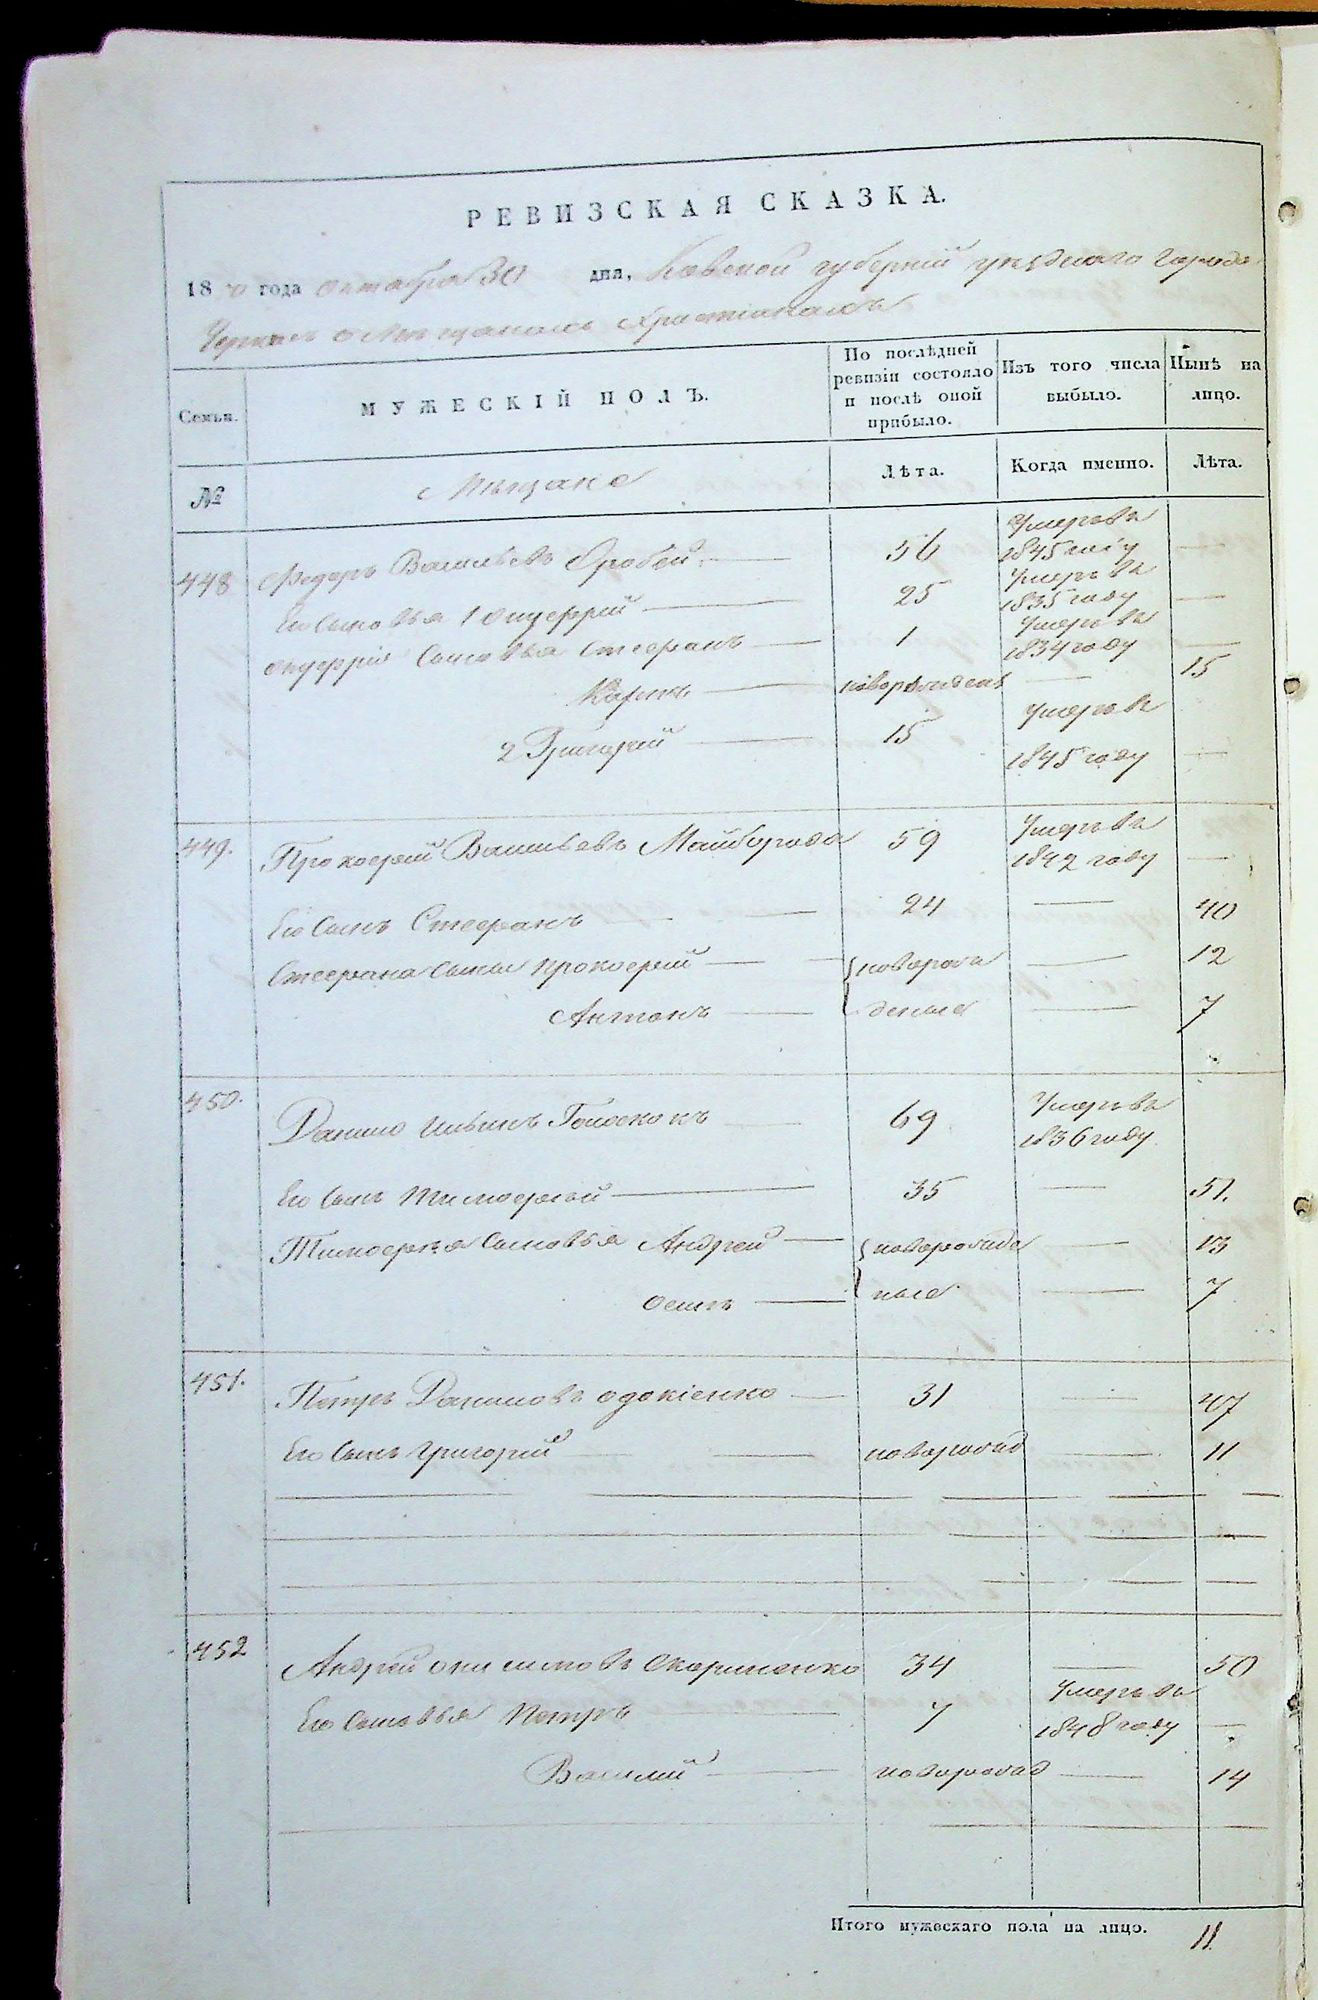 РЕВИЗСКАЯ СКАЗКА.
18 года октября 30 дня, Кіевской губерніи уѣзднаго города
Черкасъ о Мѣщанахъ Христіанахъ
Семьи. МУЖЕСКІЙ ПОЛЪ. По послѣдней ревизіи состояло и послѣ оной прибыло. Изъ того числа выбыло. Нынѣ на лицо.
№ Мѣщане Лѣта. Когда именно. Лѣта.
448 Федоръ Васильевъ 56 Умеръ въ 1845 году —
Его Сыновья 1 Онуфрій 25 Умеръ въ 1835 году —
Онуфрія Сыновья Стефанъ 1 Умеръ въ 1834 году —
Карпъ новорожденъ — 15
2 Григорій 15 Умеръ въ 1845 году —
449. Прокофій Васильевъ Майборода 59 Умеръ въ 1842 году —
Его Сынъ Стефанъ 24 — 40
Стефана Сыны Прокофій — новорож — 12
Антонъ — денные — 7
450. Данило Ильинъ Голоскокъ 69 Умеръ въ 1836 году
Его Сынъ Тимофей 35 — 51.
Тимофея Сыновья Андрей — новорожде — 13
Осипъ — ные — 7
451. Петръ Даниловъ Одокіенко — 31 — 47
Его Сынъ Григорій — новорожд — 11
452 Андрей Онисимовъ Скориненко 34 — 50
Его Сыновья Петръ 7 Умеръ въ 1848 году —
Василий — новорожд — 14
Итого мужескаго пола на лицо. 11